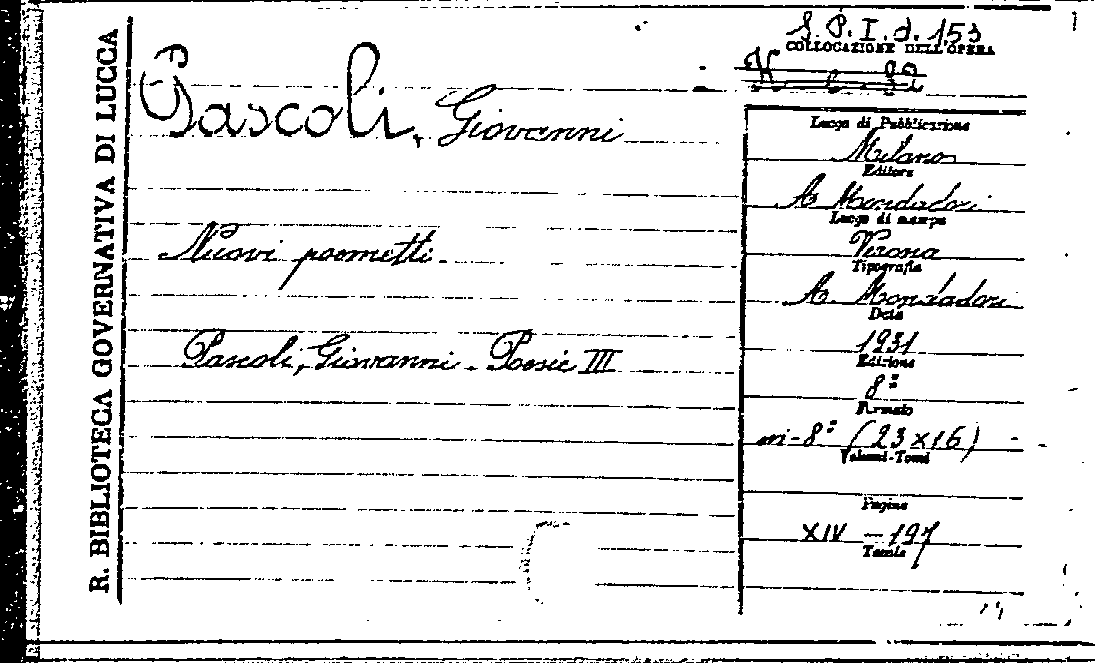 R. BIBLIOTECA GOVERNATIVA DI LUCCA
S. P. I. d. 153
COLLOCAZIONE DELL'OPERA
Pascoli, Giovanni
Nuovi poemetti.
Pascoli, Giovanni - Poesie III
Luogo di Pubblicazione
Milano
Editore
A. Mondadori
Luogo di stampa
Verona
Tipografia
A. Mondadori
Data
1931
Edizione
8ª
Formato
in-8º (23x16)
Volumi-Tomi
Pagine
XIV - 197
Tavole